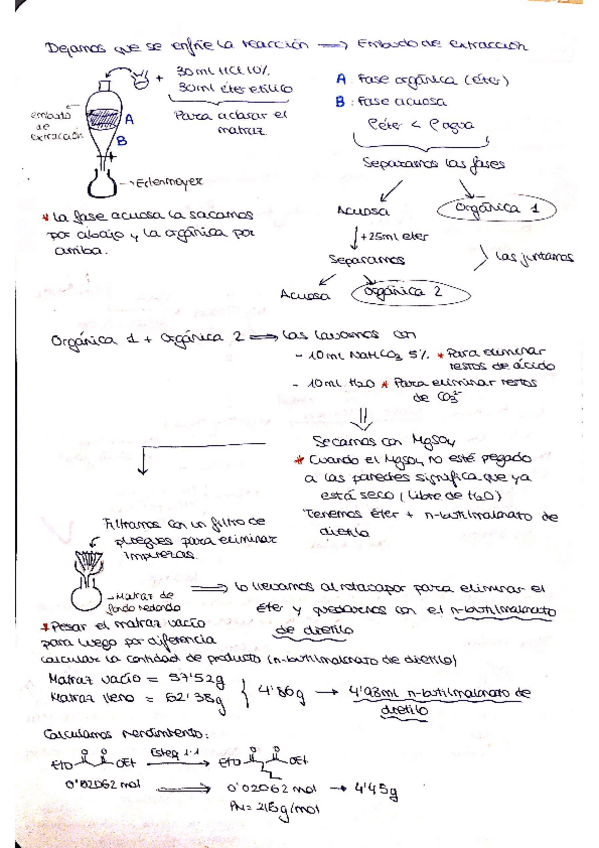 Dejamos que se enfríe la reacción ⟹ Embudo de extracción
+ 30ml HCl 10%
30ml éter etílico
Para aclarar el
matraz
embudo
de
extracción
A
B
→ Erlenmeyer
A: Fase orgánica (éter)
B: Fase acuosa
ρéter < ρagua
Separamos las fases
Acuosa
Orgánica 1
↓ +25ml eter
Separamos
Las juntamos
Acuosa
Orgánica 2
* La fase acuosa la sacamos
por abajo y la orgánica por
arriba.
Orgánica 1 + Orgánica 2 ⟹ Las lavamos con
- 10ml NaHCO3 5% * Para eliminar
restos de ácido
- 10ml H2O * Para eliminar restos
de CO3²⁻
Secamos con MgSO4
* Cuando el MgSO4 no esté pegado
a las paredes significa que ya
está seco (Libre de H2O)
Tenemos éter + n-butilmalonato de
dietilo
Filtramos con un filtro de
pliegues para eliminar
impurezas.
→ Matraz de
fondo redondo
⟹ Lo llevamos al rotavapor para eliminar el
éter y quedarnos con el n-butilmalonato
de dietilo
* Pesar el matraz vacío
para luego por diferencia
calcular la cantidad de producto (n-butilmalonato de dietilo)
Matraz vacío = 57'52g
Matraz lleno = 62'38g
4'86g → 4'98ml n-butilmalonato de
dietilo
Calculamos rendimiento:
EtO O O OEt Esteq 1:1 EtO O O OEt
0'02062 mol ⟹ 0'02062 mol → 4'45g
PM = 216g/mol